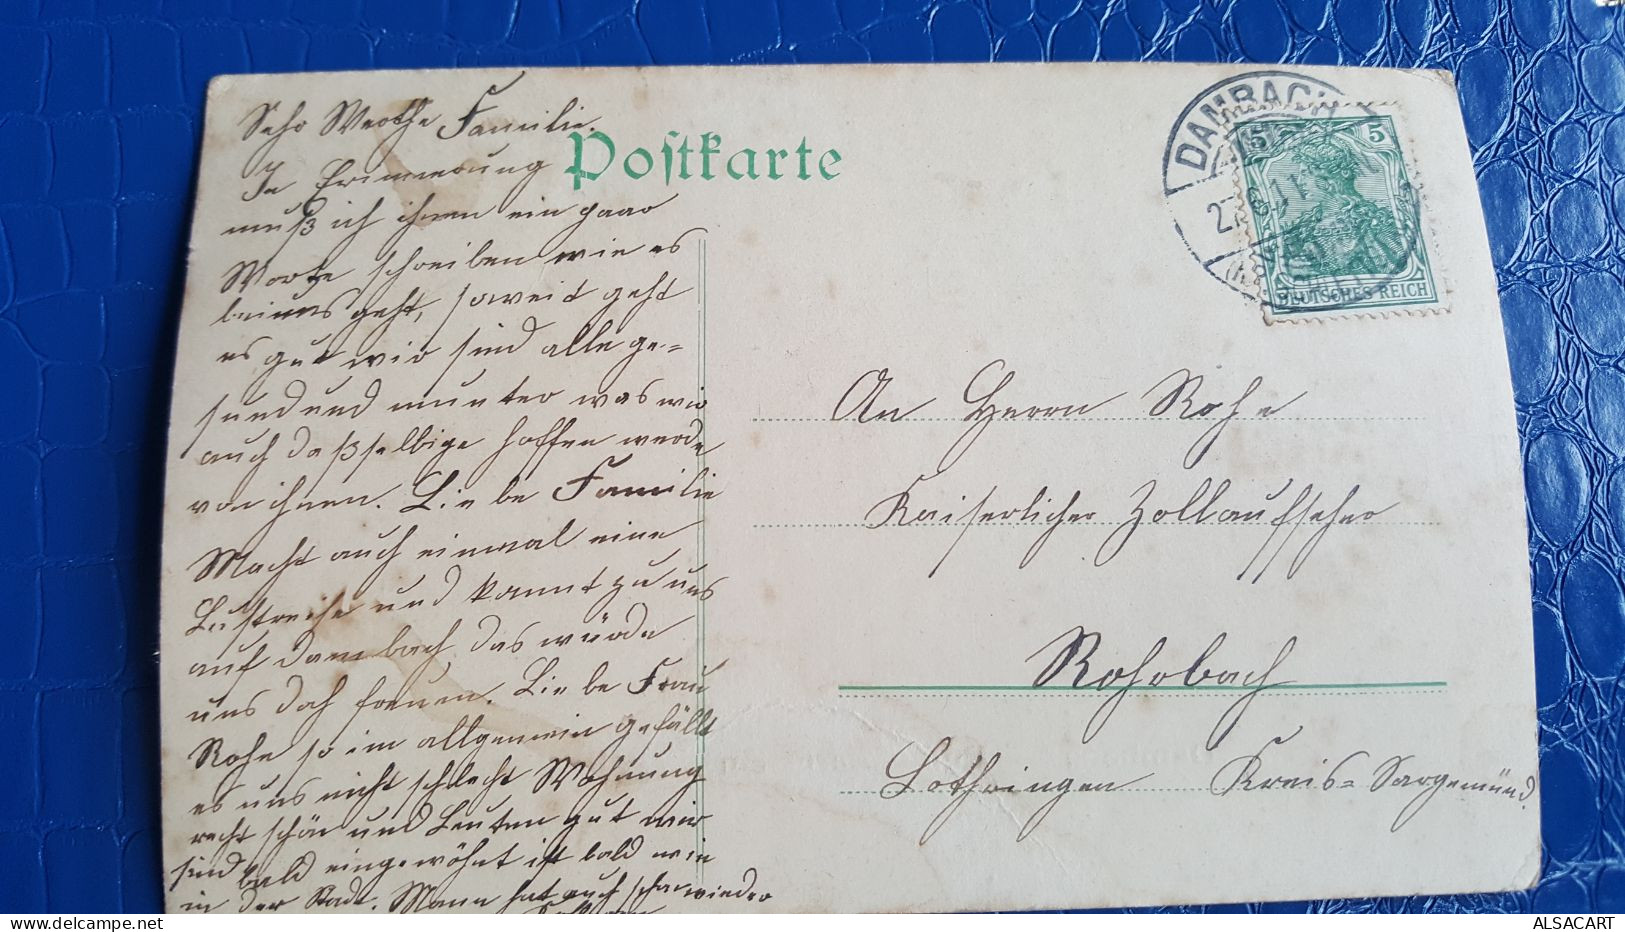 Sehr Werthe Familie.
In Erinnerung
muß ich ihnen ein paar
Worte schreiben wie es
bei uns geht, soweit geht
es gut wir sind alle ge=
sund und munter was wir
auch daßselbige hoffen werde
von ihnen. Liebe Familie
Macht auch einmal eine
Lustreise und kannt zu uns
auf Dambach das würde
uns doch freuen. Liebe Frau
Rohe so im allgemein gefällt
es uns nicht schlecht Wohnung
recht schön und Leuten gut wir
sind bald eingewöhnt ist bald wie
in der Stadt. Mann hat auch schon wieder
Postkarte
DAMBACH
27.6.11
5 5
DEUTSCHES REICH
An Herrn Rohe
Kaiserlicher Zollaufseher
Rohrbach
Lothringen Kreis= Sargemünd
ALSACART